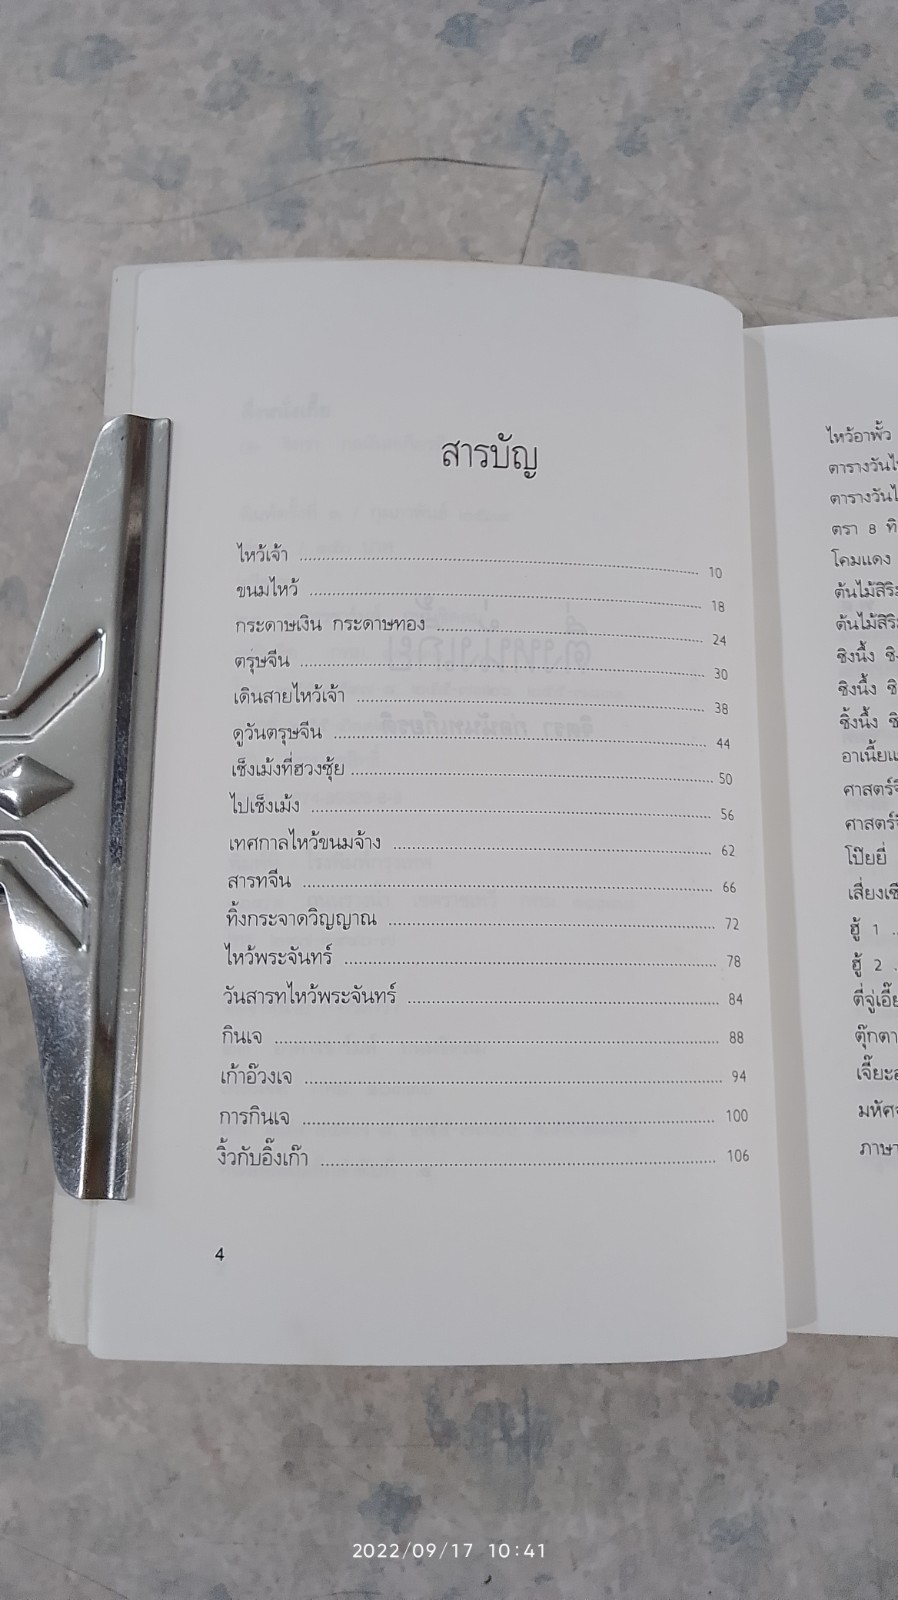 สารบัญ
ไหว้เจ้า 10
ขนมไหว้ 18
กระดาษเงิน กระดาษทอง 24
ตรุษจีน 30
เดินสายไหว้เจ้า 38
ดูวันตรุษจีน 44
เช็งเม้งที่ฮวงซุ้ย 50
ไปเช็งเม้ง 56
เทศกาลไหว้ขนมจ้าง 62
สารทจีน 66
ทิ้งกระจาดวิญญาณ 72
ไหว้พระจันทร์ 78
วันสารทไหว้พระจันทร์ 84
กินเจ 88
เก้าอ๊วงเจ 94
การกินเจ 100
งิ้วกับอิ๊งเก๊า 106
4
ไหว้อาพั้ว
ตารางวัน
ตารางวัน
ตรา 8
โคมแดง
ต้นไม้
ต้นไม้
ชิงนึ้ง
ชิงนึ้ง
อาเนี้ย
ศาสตร์
ศาสตร์
โป๊ยยี่
ฮู้ 1
ฮู้ 2
ตุ๊กตา
2022/09/17 10:41